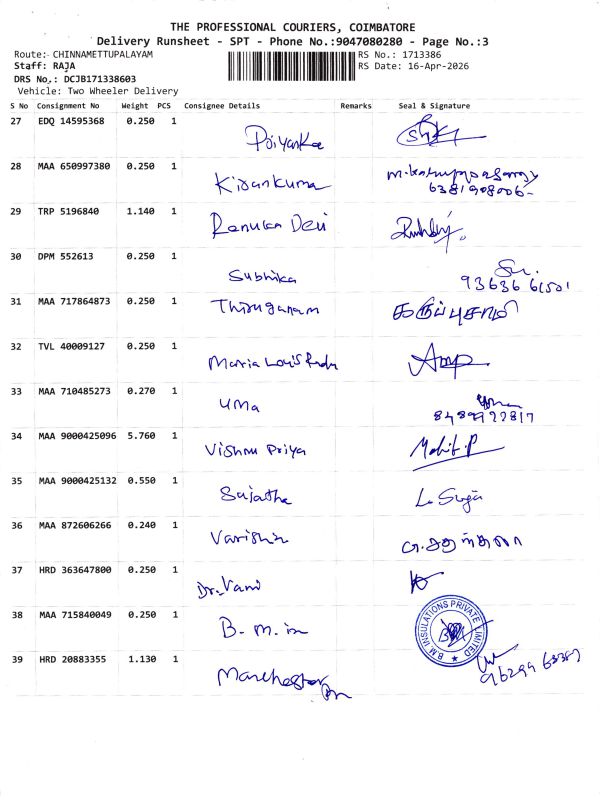 THE PROFESSIONAL COURIERS, COIMBATORE
Delivery Runsheet - SPT - Phone No.:9047080280 - Page No.:3
Route:- CHINNAMETTUPALAYAM
RS No.: 1713386
Staff: RAJA
RS Date: 16-Apr-2026
DRS No.: DCJB171338603
Vehicle: Two Wheeler Delivery
S No Consignment No Weight PCS Consignee Details Remarks Seal & Signature
27 EDQ 14595368 0.250 1 Priyanka
28 MAA 650997380 0.250 1 Kirankuma
6381908006-
29 TRP 5196840 1.140 1 Renuka Devi
30 DPM 552613 0.250 1 Subhika
93636 61501
31 MAA 717864873 0.250 1 Thiruganam கருப்புசாமி
32 TVL 40009127 0.250 1 Maria Louis
33 MAA 710485273 0.270 1 uma
8489922817
34 MAA 9000425096 5.760 1 Vishnu Priya Mohit.P
35 MAA 9000425132 0.550 1 Sujatha
36 MAA 872606266 0.240 1 Varisha
37 HRD 363647800 0.250 1 Dr.Vani
38 MAA 715840049 0.250 1 B.m.in
B.M. INSULATIONS PRIVATE LIMITED
39 HRD 20883355 1.130 1 Manchester